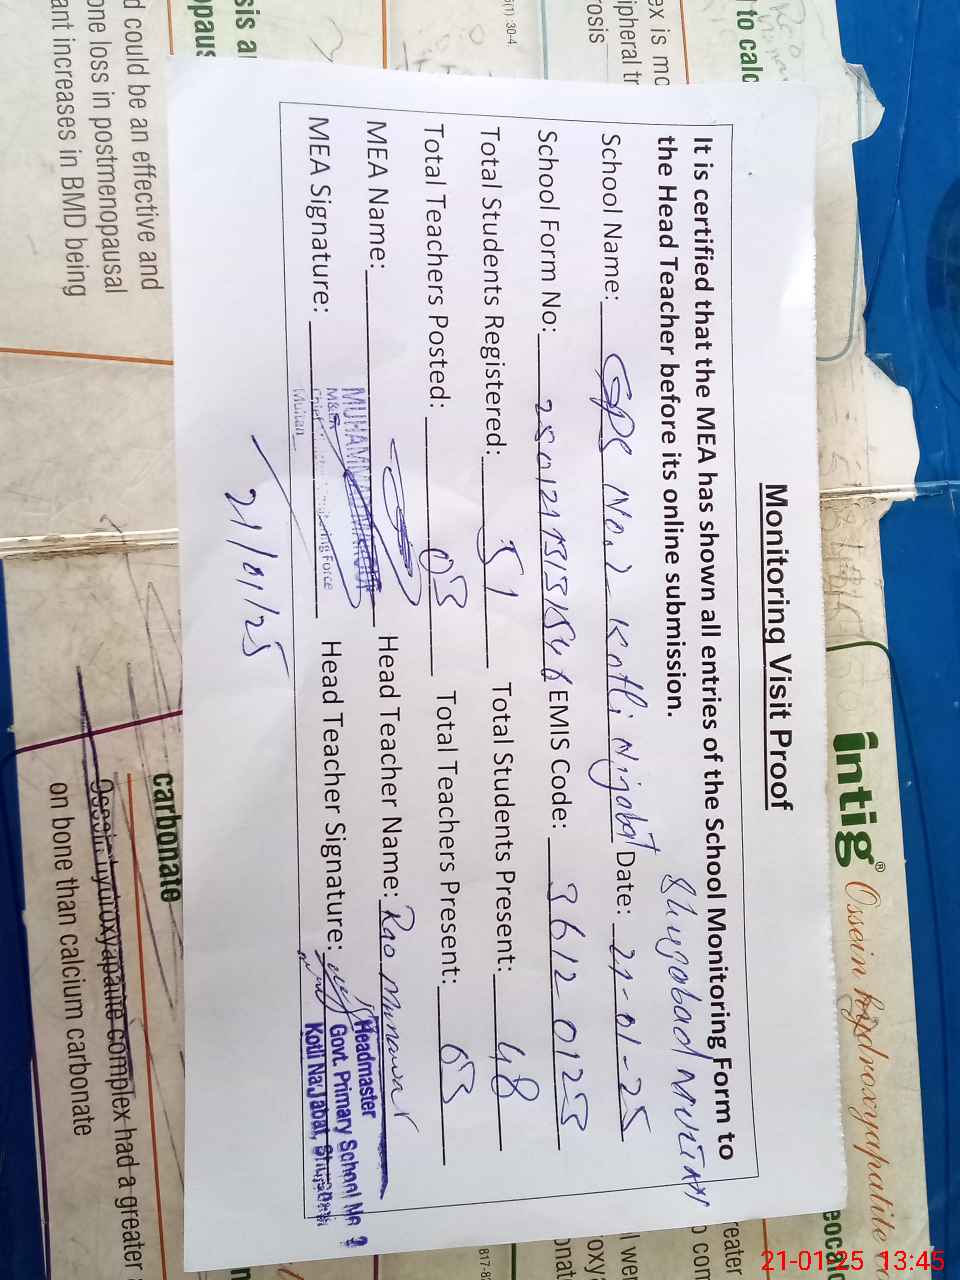 Monitoring Visit Proof
It is certified that the MEA has shown all entries of the School Monitoring Form to
the Head Teacher before its online submission.
Shujabad Multan
School Name: GPS No. 2 Kotli Nijabat Date: 21-01-25
School Form No: EMIS Code: 3612 0125
Total Students Registered: 51 Total Students Present: 48
Total Teachers Posted: 03 Total Teachers Present: 03
MEA Name: Head Teacher Name: Rao Munawar
MEA Signature: Head Teacher Signature:
MUHAMMAD
Monitoring Force
Multan
Headmaster
Govt. Primary School No 2
Kotli Najabat, Shujabad
21/01/25
intig® Ossein hydroxyapatite
to calc
ex is mo
ipheral tr
rosis
5(1) :30-4
sis a
opaus
d could be an effective and
one loss in postmenopausal
ant increases in BMD being
carbonate
Ossein hydroxyapatite complex had a greater
on bone than calcium carbonate
eocalc
reater
o con
817-8
21-01-25 13:45